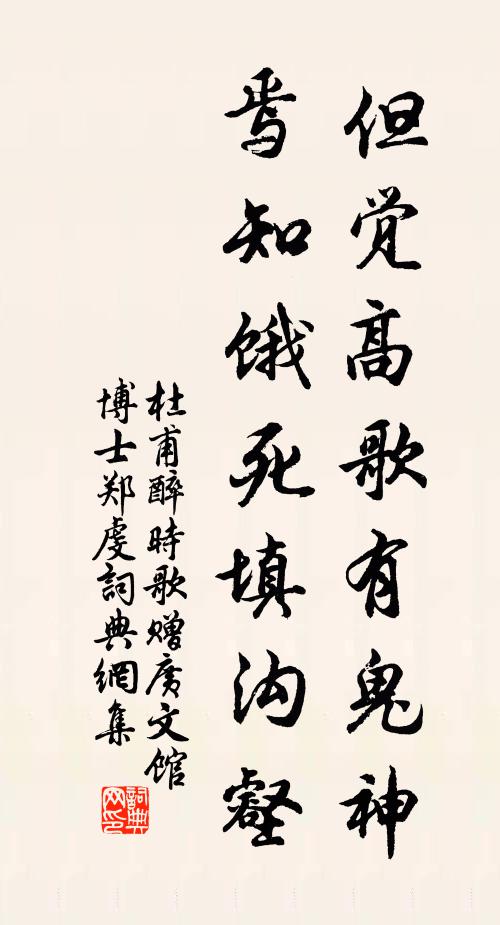 但觉高歌有鬼神
焉知饿死填沟壑
杜甫醉時歌赠廣文馆
博士郑虔詞典網集
詞典
网印